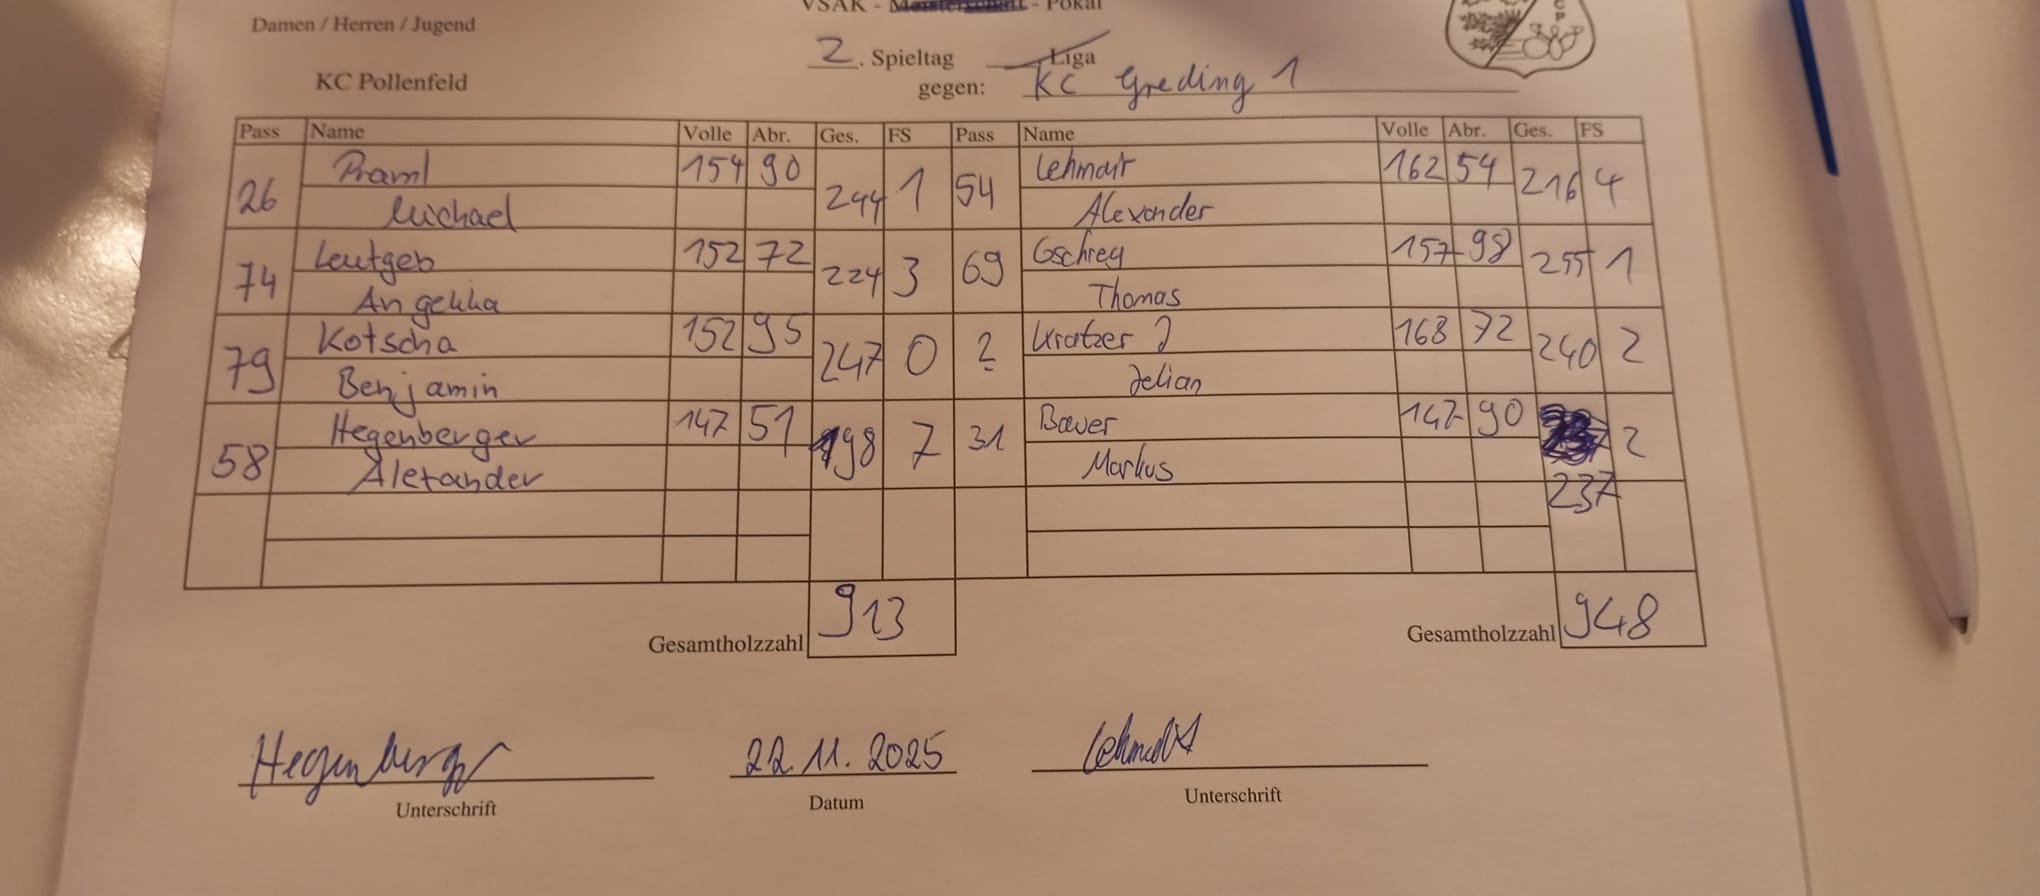 VSAK - Meisterschaft - Pokal
Damen / Herren / Jugend
2. Spieltag Liga
KC Pollenfeld gegen: KC Greding 1
Pass Name Volle Abr. Ges. FS Pass Name Volle Abr. Ges. FS
26 Praml 154 90 244 1 54 Lehmair 162 54 216 4
Michael Alexander
74 Leutgeb 152 72 224 3 69 Gschrey 157 98 255 1
Angelika Thomas
79 Kotscha 152 95 247 0 ? Kratzer J 168 72 240 2
Benjamin Julian
58 Hegenberger 147 51 198 7 31 Bauer 147 90 2
Alexander Markus
237
Gesamtholzzahl 913 Gesamtholzzahl 948
Hegenberger 22.11.2025
Unterschrift Datum Unterschrift